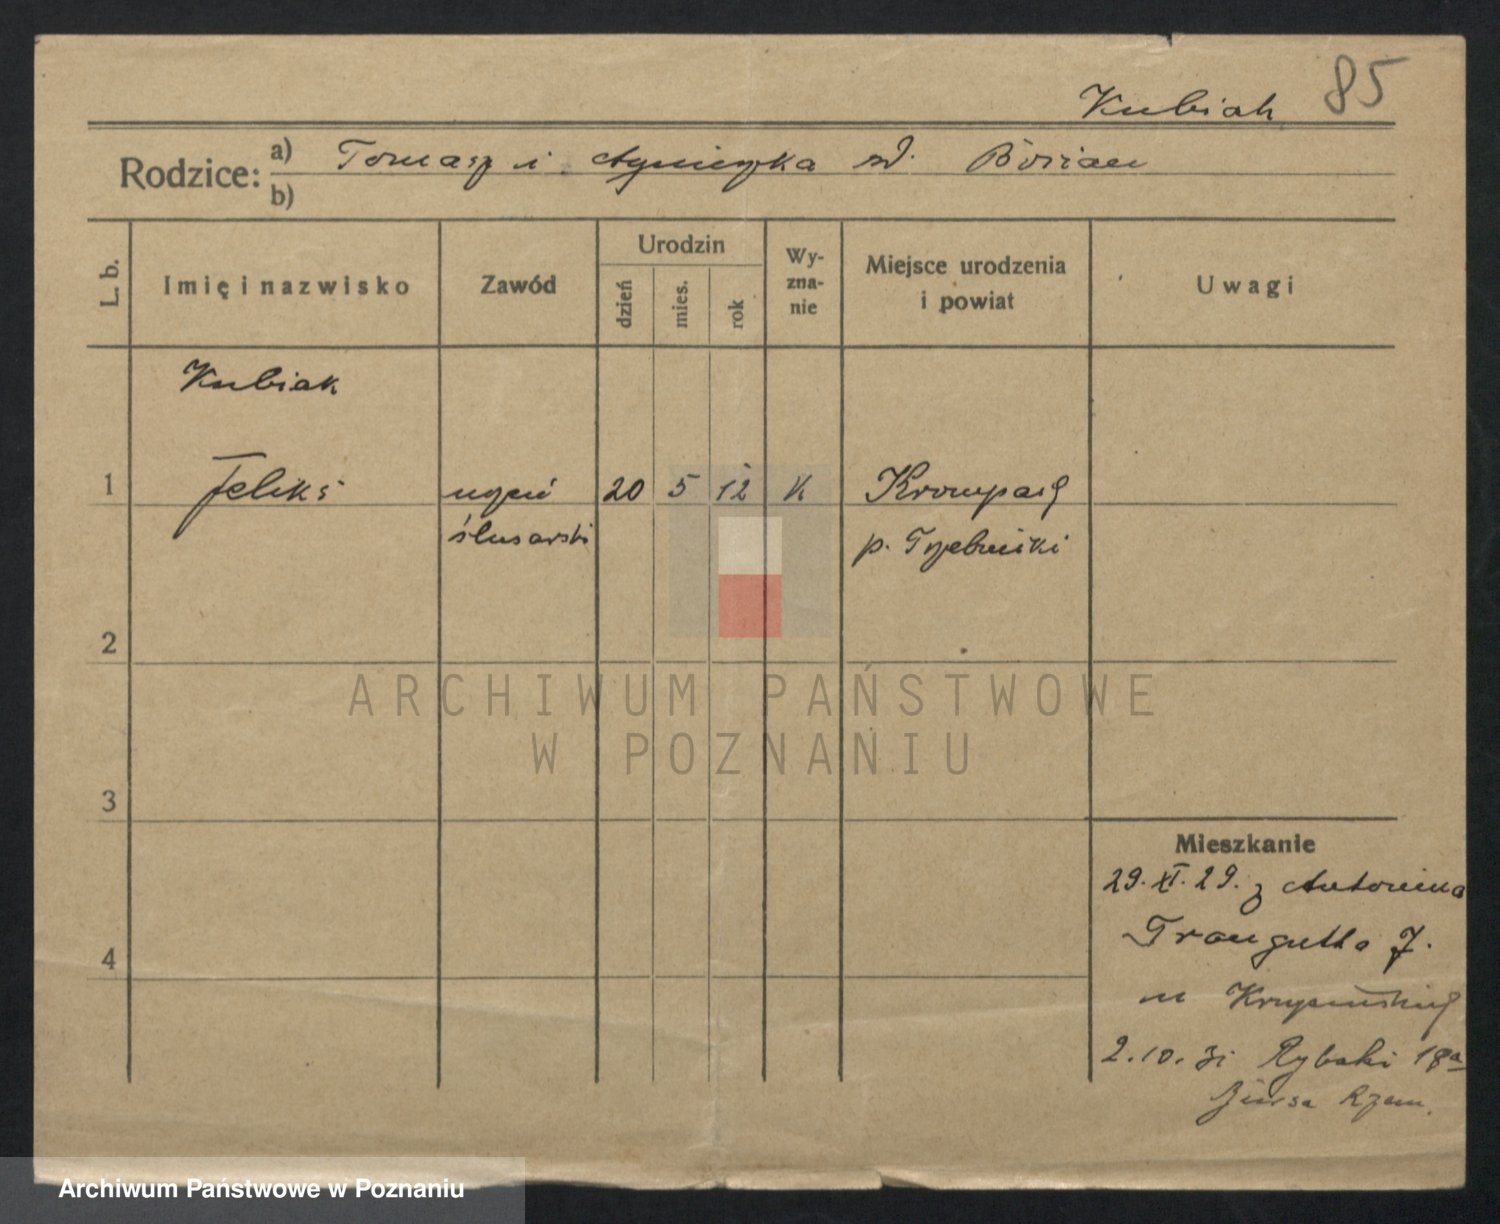 Kubiak 85
Rodzice: a) Tomasz i Agnieszka
b)
L. b. Imię i nazwisko Zawód Urodzin dzień mies. rok Wy-zna-nie Miejsce urodzenia i powiat Uwagi
Kubiak
1 Feliks uczeń 20 5 12 k
ślusarski p.
2
3
4
Mieszkanie
29. XI. 29. z Antonina
Traugutta 7.
u
2.10.31 Rybaki 18a
Bursa Rzem.
ARCHIWUM PAŃSTWOWE
W POZNANIU
Archiwum Państwowe w Poznaniu